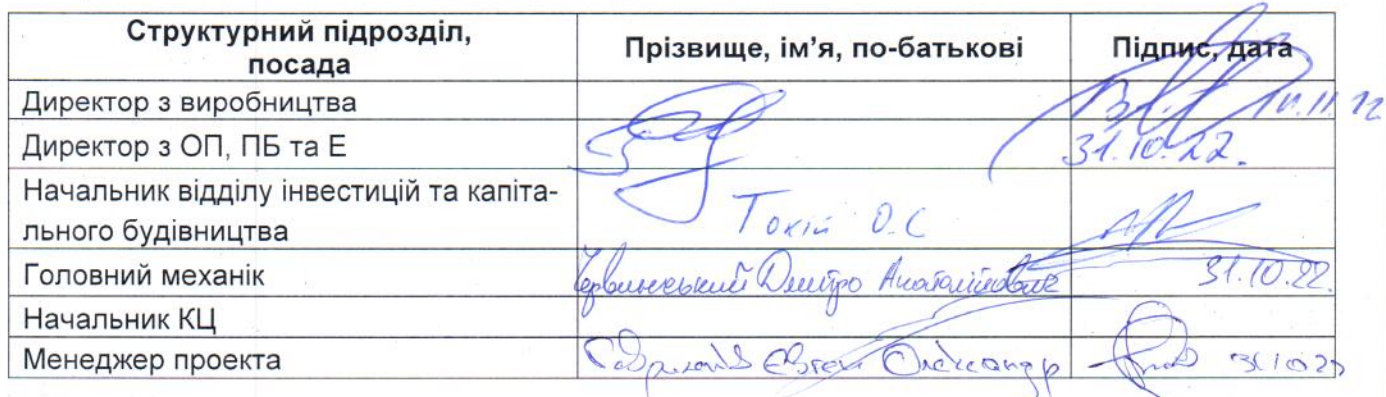 Структурний підрозділ, посада Прізвище, ім’я, по-батькові Підпис, дата
Директор з виробництва
Директор з ОП, ПБ та Е 31.10.22.
Начальник відділу інвестицій та капіта-
льного будівництва Токій О.С
Головний механік Червинський Дмитро Анатолійович 31.10.22.
Начальник КЦ
Менеджер проекта